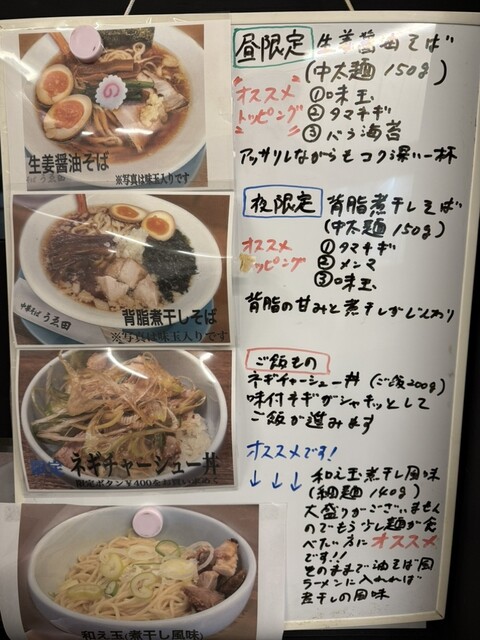 生姜醤油そば
※写真は味玉入りです
昼限定 生姜醤油そば
(中太麺 150g)
オススメ
トッピング
①味玉
②タマネギ
③バラ海苔
アッサリしながらもコク深い一杯
中華そば うゑ田
背脂煮干しそば
※写真は味玉入りです
夜限定 背脂煮干しそば
(中太麺 150g)
オススメ
トッピング
①タマネギ
②メンマ
③味玉
背脂の甘みと煮干しがじんわり
限定 ネギチャーシュー丼
限定ボタン¥400をお買い求め
ご飯もの
ネギチャーシュー丼 (ご飯200g)
味付ネギがシャキッとして
ご飯が進みます
和え玉(煮干し風味)
オススメです!
↓ ↓ ↓
和え玉煮干し風味
(細麺 140g)
大盛りがございません
のでもう少し麺が食
べたい方にオススメ
です!!
そのままで油そば風
ラーメンに入れれば
煮干しの風味